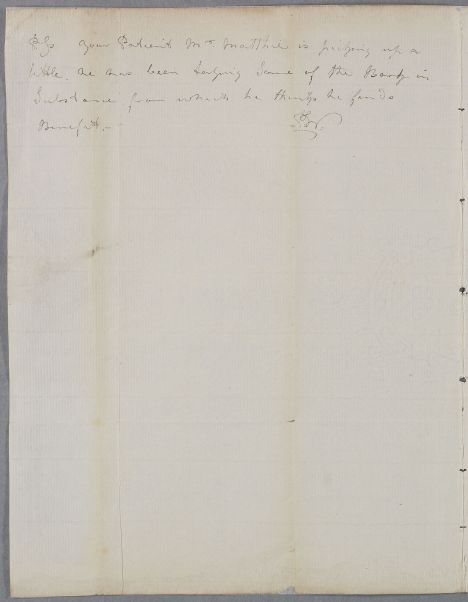 PS your Patient Mr. Matthie is picking up a
little. he has been taking some of the Bark in
Substance from which he thinks he finds
Benefit. -